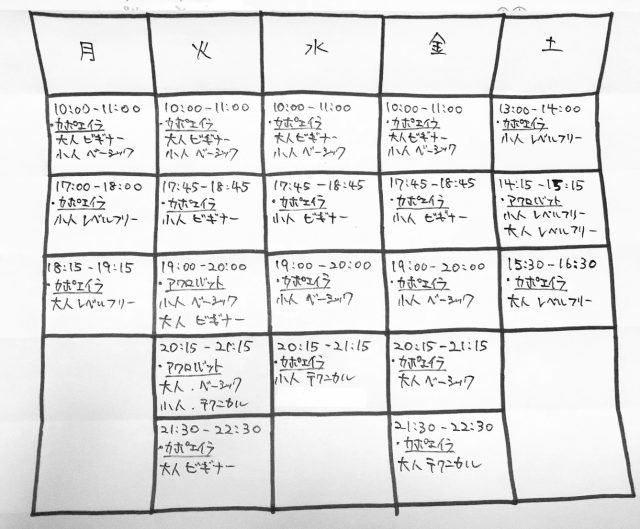 月
火
水
金
土
10:00-11:00
・カポエイラ
大人 ビギナー
小人 ベーシック
10:00-11:00
・カポエイラ
大人 ビギナー
小人 ベーシック
10:00-11:00
・カポエイラ
大人 ビギナー
小人 ベーシック
10:00-11:00
・カポエイラ
大人 ビギナー
小人 ベーシック
13:00-14:00
・カポエイラ
小人 レベルフリー
17:00-18:00
・カポエイラ
小人 レベルフリー
17:45-18:45
・カポエイラ
小人 ビギナー
17:45-18:45
・カポエイラ
小人 ビギナー
17:45-18:45
・カポエイラ
小人 ビギナー
14:15-15:15
・アクロバット
小人 レベルフリー
大人 レベルフリー
18:15-19:15
・カポエイラ
大人 レベルフリー
19:00-20:00
・アクロバット
小人 ベーシック
大人 ビギナー
19:00-20:00
・カポエイラ
小人 ベーシック
19:00-20:00
・カポエイラ
小人 ベーシック
15:30-16:30
・カポエイラ
大人 レベルフリー
20:15-21:15
・アクロバット
大人.ベーシック
小人.テクニカル
20:15-21:15
・カポエイラ
小人 テクニカル
20:15-21:15
・カポエイラ
大人 ベーシック
21:30-22:30
・カポエイラ
大人 ビギナー
21:30-22:30
・カポエイラ
大人 テクニカル